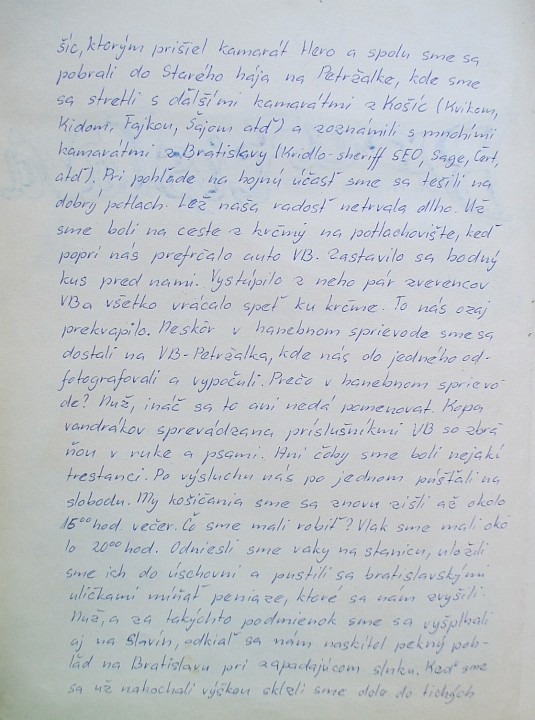 šíc, ktorým prišiel kamarát Hero a spolu sme sa
pobrali do Starého hája na Petržalke, kde sme
sa stretli s ďalšími kamarátmi z Košíc (Kvikom,
Kidom, Fajkou, Šajom atď) a zoznámili s mnohími
kamarátmi z Bratislavy (Krídlo-sheriff SEO, Sage, Čert,
atď). Pri pohľade na hojnú účasť sme sa tešili na
dobrý potlach. Lež naša radosť netrvala dlho. Už
sme boli na ceste z krčmy na potlachovište, keď
popri nás prefrčalo auto VB. Zastavilo sa hodný
kus pred nami. Vystúpilo z neho pár zverencov
VB a všetko vrácalo späť ku krčme. To nás ozaj
prekvapilo. Neskôr v hanebnom sprievode sme sa
dostali na VB-Petržalka, kde nás do jedného od-
fotografovali a vypočuli. Prečo v hanebnom sprievo-
de? Nuž, ináč sa to ani nedá pomenovať. Kopa
vandrákov sprevádzana príslušníkmi VB so zbra
ňou v ruke a psami. Ani čoby sme boli nejakí
trestanci. Po výsluchu nás po jednom púšťali na
slobodu. My košičania sme sa znovu zišli až okolo
15⁰⁰ hod. večer. Čo sme mali robiť? Vlak sme mali oko
lo 20⁰⁰ hod. Odniesli sme vaky na stanicu, uložili
sme ich do úschovni a pustili sa bratislavskými
uličkami míňať peniaze, ktoré sa nám zvýšili.
Nuž, a za takýchto podmienok sme sa vyšplhali
aj na Slavín, odkiaľ sa nám naskitol pekný poh-
ľad na Bratislavu pri zapadajúcom slnku. Keď sme
sa už nahochali výškou sklzli sme dole do tichých